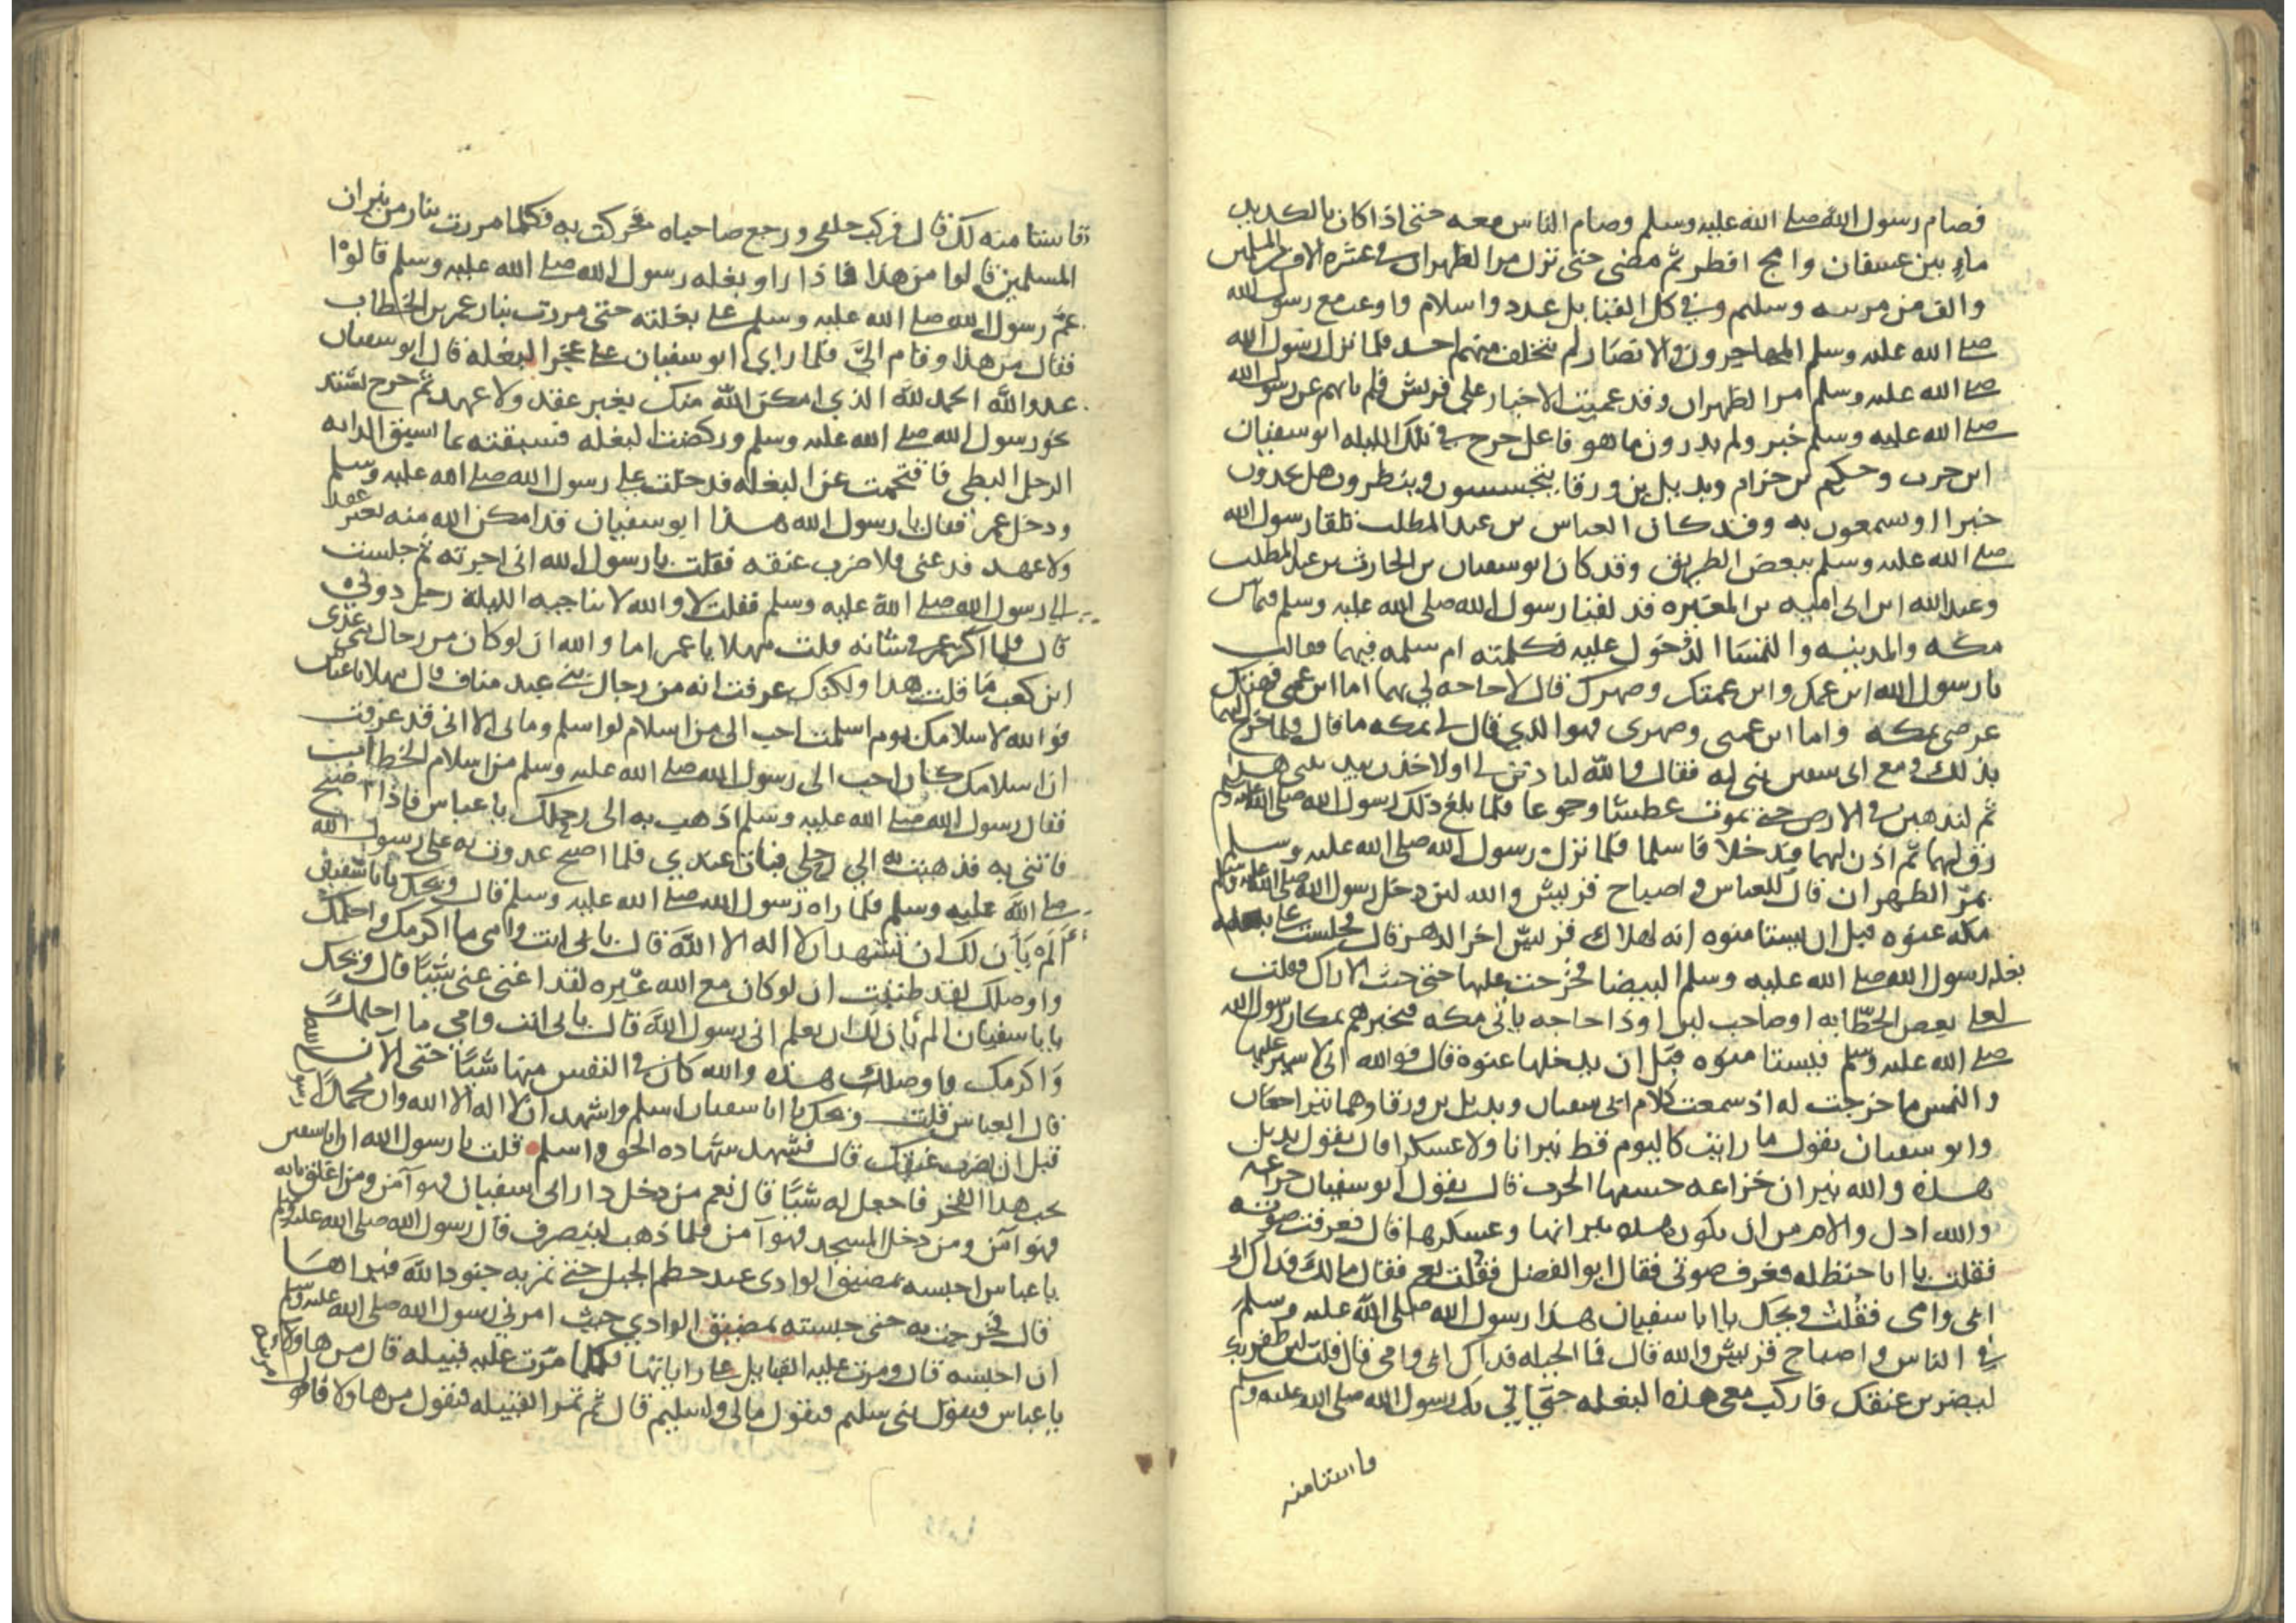 فصام رسول الله صلى الله عليه وسلم وصام الناس معه حتى اذا كان بالكديد
ماء بين عسفان وامج افطر ثم مضى حتى نزل مر الظهران في عشره الاف من المسلمين
والف من مزينه وسليم وفي كل القبايل عدد واسلام واوعب مع رسول الله
صلى الله عليه وسلم المهاجرون والانصار لم يتخلف منهم احد فلما نزل رسول الله
صلى الله عليه وسلم مر الظهران وقد عميت الاخبار على قريش فلم ياتهم عن رسول الله
صلى الله عليه وسلم خبر ولم يدرون ما هو فاعل خرج في تلك الليله ابو سفيان
ابن حرب وحكيم بن حزام وبديل بن ورقا يتجسسون وينظرون هل يجدون
خبرا او يسمعون به وقد كان العباس بن عبد المطلب تلقا رسول الله
صلى الله عليه وسلم ببعض الطريق وقد كان ابو سفيان بن الحارث بن عبد المطلب
وعبد الله ابن ابي اميه بن المغيره قد لقيا رسول الله صلى الله عليه وسلم فيما بين
مكه والمدينه والتمسا الدخول عليه فكلمته ام سلمه فيهما فقالت
يا رسول الله ابن عمك وابن عمتك وصهرك قال لا حاجه لي بهما اما ابن عمي فهتك
عرضي بمكه واما ابن عمتي وصهري فهو الذي قال لي بمكه ما قال فلما خرج اليهما
بذلك ومع ابي سفين بني له فقال والله ليا ذنن لي او لاخذن بيد بني هذا
ثم لنذهبن في الارض حتى نموت عطشا وجوعا فلما بلغ ذلك رسول الله صلى الله عليه وسلم
رق لهما ثم اذن لهما فدخلا فاسلما فلما نزل رسول الله صلى الله عليه وسلم
بمر الظهران قال للعباس واصباح قريش والله لين دخل رسول الله صلى الله عليه وسلم
مكه عنوه قبل ان يستامنوه انه لهلاك قريش اخر الدهر قال فجلست على بغله
بغله رسول الله صلى الله عليه وسلم البيضا فخرجت عليها حتى جيت الاراك فقلت
لعلي بعض الحطابه او صاحب لبن او ذا حاجه ياتي مكه فيخبرهم بمكان رسول الله
صلى الله عليه وسلم فيستامنوه قبل ان يدخلها عنوه قال فوالله اني لاسير عليها
والتمس ما خرجت له اذ سمعت كلام ابي سفيان وبديل بن ورقا وهما يتراجعان
وابو سفيان يقول ما رايت كاليوم قط نيرانا ولا عسكرا قال يقول بديل
هذه والله نيران خزاعه حمستها الحرب قال يقول ابو سفيان خزاعه
والله ادل والام من ان يكون هذه نيرانها وعسكرها قال فعرفت صوته
فقلت يا ابا حنظله فعرف صوتي فقال ابو الفضل فقلت نعم فقال مالك فداك ابي
ابي وامي فقلت ويحك يا ابا سفيان هذا رسول الله صلى الله عليه وسلم
في الناس واصباح قريش والله قال فما الحيله فداك ابي وامي قال قلت لين ظفر بك
ليضربن عنقك فاركب معي هذه البغله حتى اتي بك رسول الله صلى الله عليه وسلم
فاستامنه
فاستامنه لك قال فركب خلفي ورجع صاحباه فحركت به فكلما مررت بنار من نيران
المسلمين قالوا من هذا فاذا راو بغله رسول الله صلى الله عليه وسلم قالوا
عم رسول الله صلى الله عليه وسلم على بغلته حتى مررت بنار عمر بن الخطاب
فقال من هذا وقام الي فلما راى ابو سفيان على عجز البغله قال ابو سفيان
عدو الله الحمد لله الذي امكن الله منك بغير عقد ولا عهد ثم خرج يشتد
نحو رسول الله صلى الله عليه وسلم وركضت البغله فسبقته بما تسبق الدابه
الرجل البطي فاقتحمت عن البغله فدخلت على رسول الله صلى الله عليه وسلم
ودخل عمر فقال يا رسول الله هذا ابو سفيان قد امكن الله منه بغير عقد
ولا عهد فدعني فلاضرب عنقه فقلت يا رسول الله اني اجرته ثم جلست
الى رسول الله صلى الله عليه وسلم فقلت لا والله لا يناجيه الليلة رجل دوني
قال فلما اكثر عمر في شانه قلت مهلا يا عمر اما والله ان لو كان من رجال بني عدي
ابن كعب ما قلت هذا ولكنك عرفت انه من رجال بني عبد مناف قال مهلا يا عباس
فوالله لاسلامك يوم اسلمت احب الي من اسلام لو اسلم وما بي الا اني قد عرفت
ان اسلامك كان احب الى رسول الله صلى الله عليه وسلم من اسلام الخطاب
فقال رسول الله صلى الله عليه وسلم اذهب به الى رحلك يا عباس فاذا اصبح
فاتني به فذهبت به الى رحلي فبات عندي فلما اصبح غدوت به على رسول الله
صلى الله عليه وسلم فلما راه رسول الله صلى الله عليه وسلم قال ويحك يا با سفيان
الم يان لك ان تشهد ان لا اله الا الله قال بابي انت وامي ما اكرمك واحلمك
واوصلك لقد ظننت ان لو كان مع الله غيره لقد اغنى عني شيا قال ويحك
يا با سفيان الم يان لك ان تعلم اني رسول الله قال بابي انت وامي ما احلمك
واكرمك واوصلك هذه والله كان في النفس منها شيا حتى الان
قال العباس قلت ويحك يا ابا سفيان اسلم واشهد ان لا اله الا الله وان محمدا رسول الله
قبل ان يضرب عنقك قال فشهد شهاده الحق واسلم قلت يا رسول الله ان ابا سفين
يحب هذا الفخر فاجعل له شيا قال نعم من دخل دار ابي سفيان فهو آمن ومن اغلق بابه
فهو آمن ومن دخل المسجد فهو آمن فلما ذهب لينصرف قال رسول الله صلى الله عليه وسلم
يا عباس احبسه بمضيق الوادي عند خطم الجبل حتى تمر به جنود الله فيراها
قال فخرجت به حتى حبسته بمضيق الوادي حيث امرني رسول الله صلى الله عليه وسلم
ان احبسه قال ومرت عليه القبايل على راياتها فكلما مرت عليه قبيله قال من هاولاء
يا عباس فيقول بني سليم فيقول مالي ولسليم قال ثم تمر القبيله فيقول من هاولا فاقول